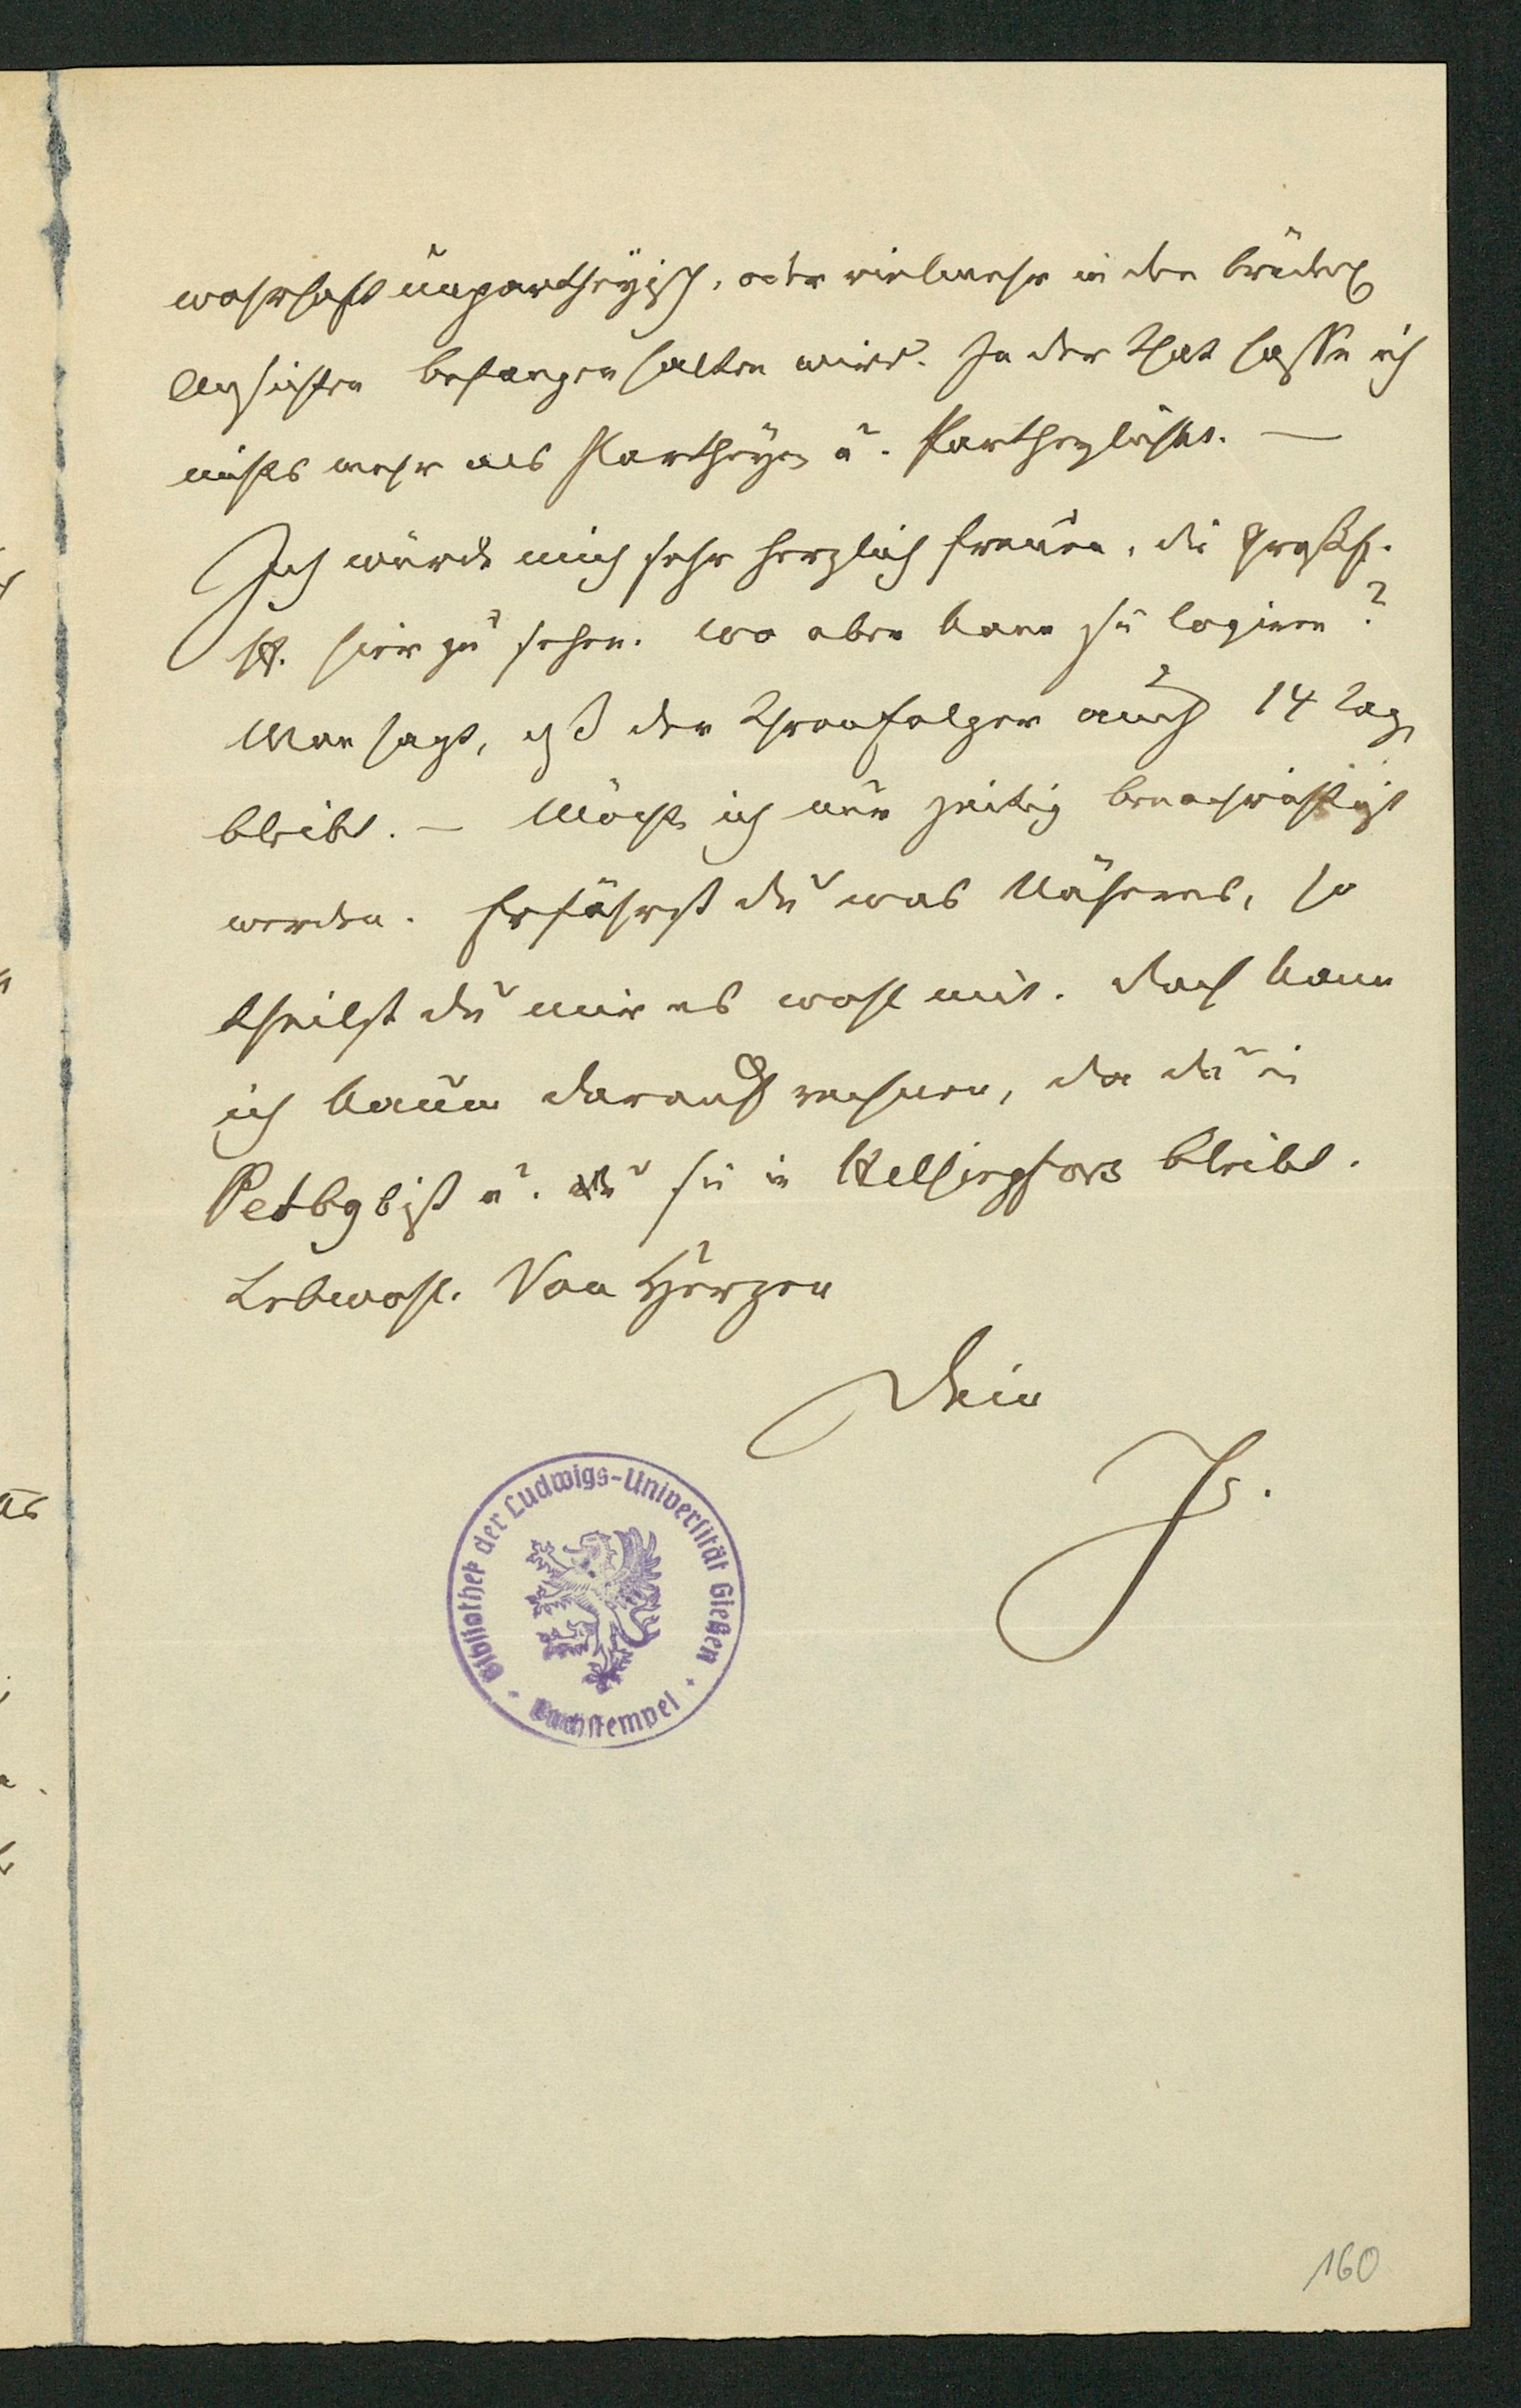 wahrhaft unpartheyisch, oder vielmehr in den
Ansichten befangen halten wird. In der That hasse ich
nichts mehr als Partheyen u. Partheylichkt. —
Ich würde mich sehr herzlich freuen, die Großf.
H. hier zu sehen. Wo aber kann sie logiren?
Man sagt, dß der Thronfolger auch 14 Tage
bleibt. — Möchte ich nur zeitig benachrichtigt
werden. Erfährst du was Näheres, so
theilst du mir es wohl mit. Doch kann
ich kaum darauf rechnen, da du in
Petbg bist u. sie in Helsingfors bleibt.
Lebwohl. Von Herzen
Dein
J.
Bibliothek der Ludwigs-Universität Gießen
160